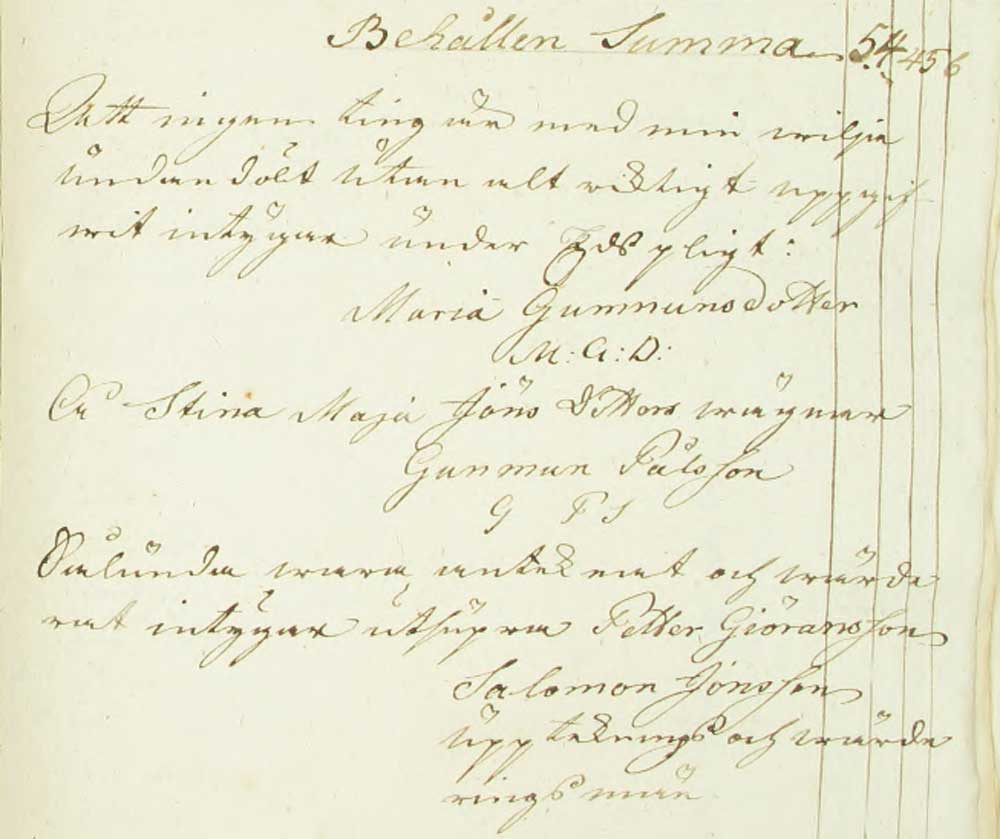 Behållen Summa 54 45 6
Att ingen ting är med min wilja
undandölt utan alt riktigt uppgif-
wit intygar under Eds pligt:
Maria Gummunsdotter
M: G: D:
På Stina Maja Jöns Dotters wägnar
Gunmun Pålsson
G P S
Sålunda wara anteknat och wärde
rat intygar utsupra Petter Giöransson
Salomon Jonsson
Uppteknings och wärde
rings män